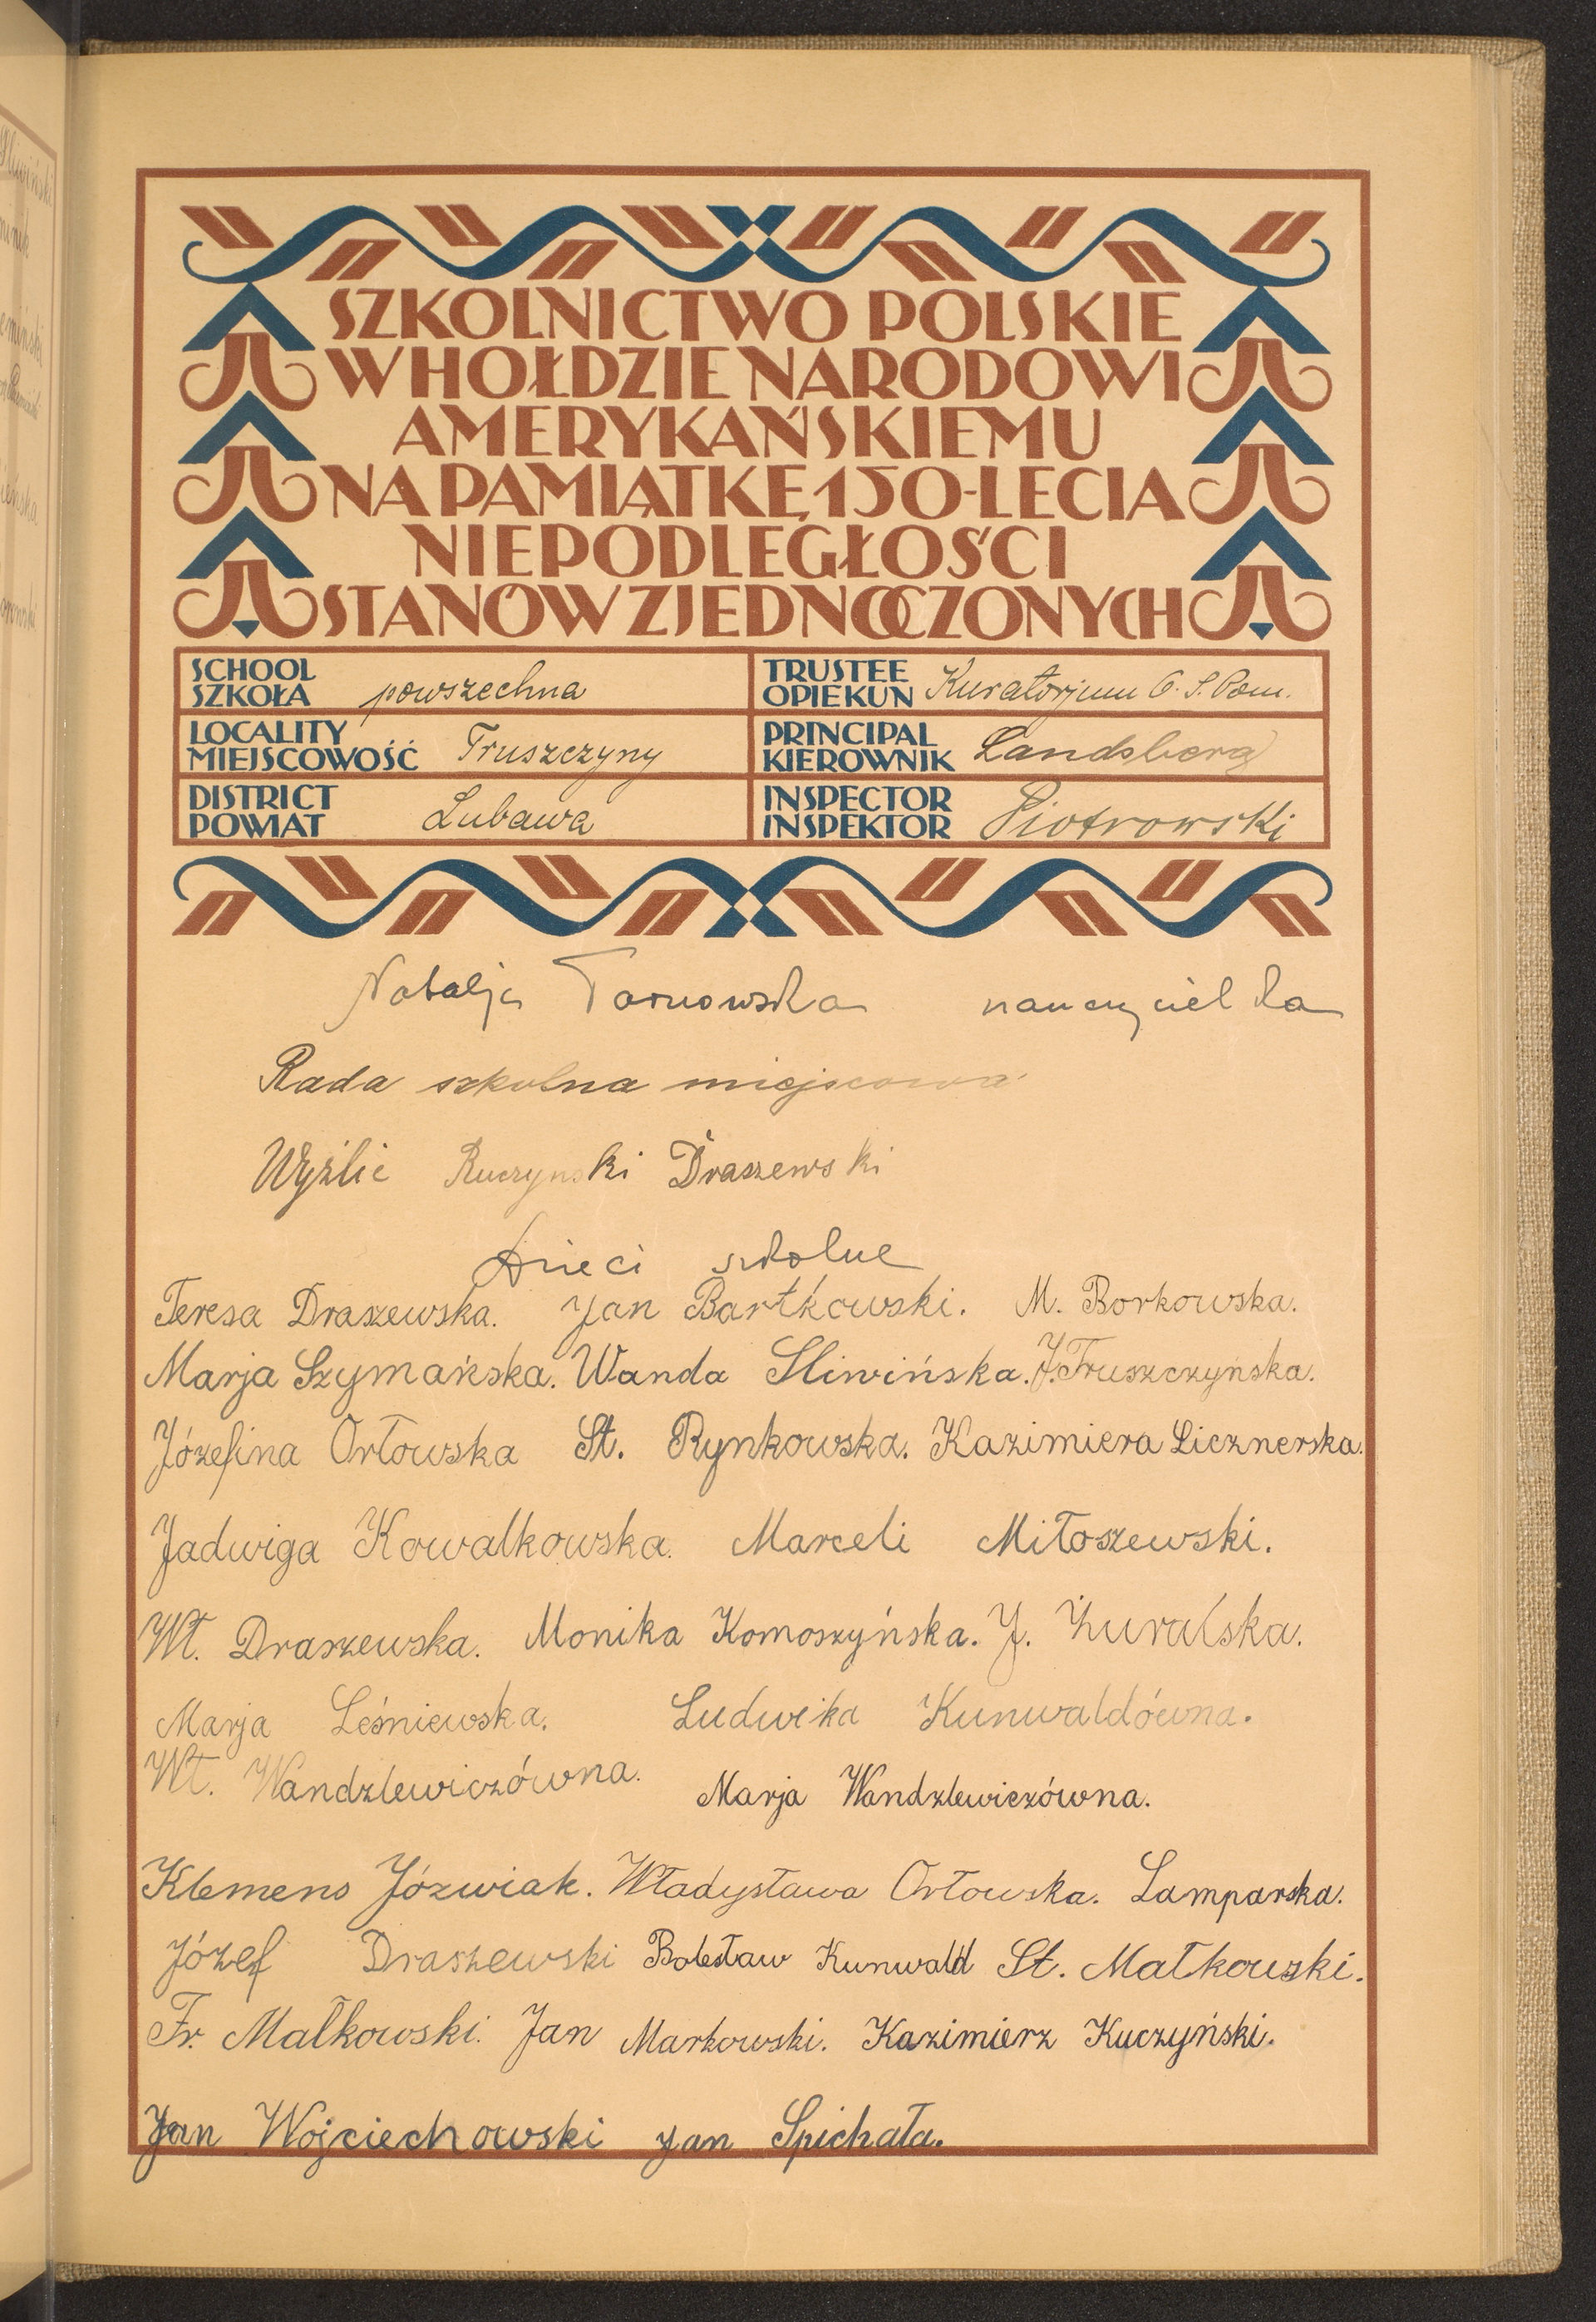 SZKOLNICTWO POLSKIE
W HOŁDZIE NARODOWI
AMERYKAŃSKIEMU
NA PAMIĄTKĘ 150-LECIA
NIEPODLEGŁOŚCI
STANÓW ZJEDNOCZONYCH
SCHOOL
SZKOŁA powszechna
TRUSTEE
OPIEKUN Kuratorjum O. S. Pom.
LOCALITY
MIEJSCOWOŚĆ Truszczyny
PRINCIPAL
KIEROWNIK Landsberg
DISTRICT
POWIAT Lubawa
INSPECTOR
INSPEKTOR Piotrowski
Natalja Tarnowska nauczycielka
Rada szkolna miejscowa
Wyżlic Kuczynski Draszewski
Dzieci szkolne
Teresa Draszewska. Jan Bartkowski. M. Borkowska.
Marja Szymańska. Wanda Sliwińska. J. Truszczyńska.
Józefina Orłowska St. Rynkowska. Kazimiera Licznerska.
Jadwiga Kowalkowska. Marceli Miłoszewski.
Wł. Draszewska. Monika Komoszyńska. J. Żuralska.
Marja Leśniewska. Ludwika Kunwaldówna.
Wł. Wandzlewiczówna. Marja Wandzlewiczówna.
Klemens Józwiak. Władysława Orłowska. Lamparska.
Józef Draszewski Bolesław Kunwald St. Małkowski.
Fr. Małkowski. Jan Markowski. Kazimierz Kuczyński.
Jan Wojciechowski Jan Spichała.